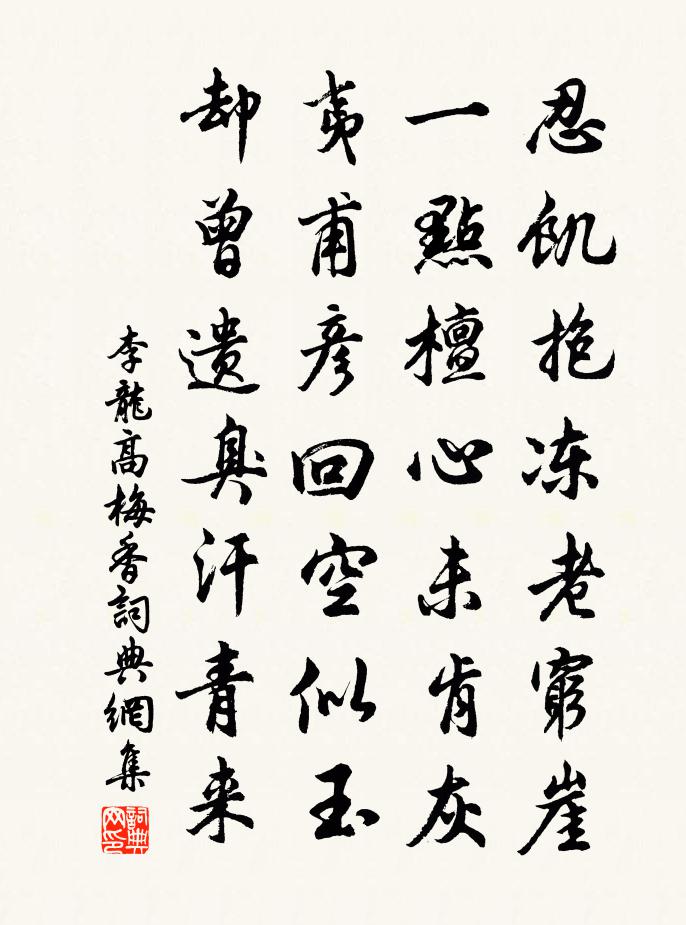 忍飢抱冻老窮崖
一點檀心未肯灰
夷甫彦回空似玉
却曾遗臭汗青来
李龍高梅香詞典網集
詞典网印